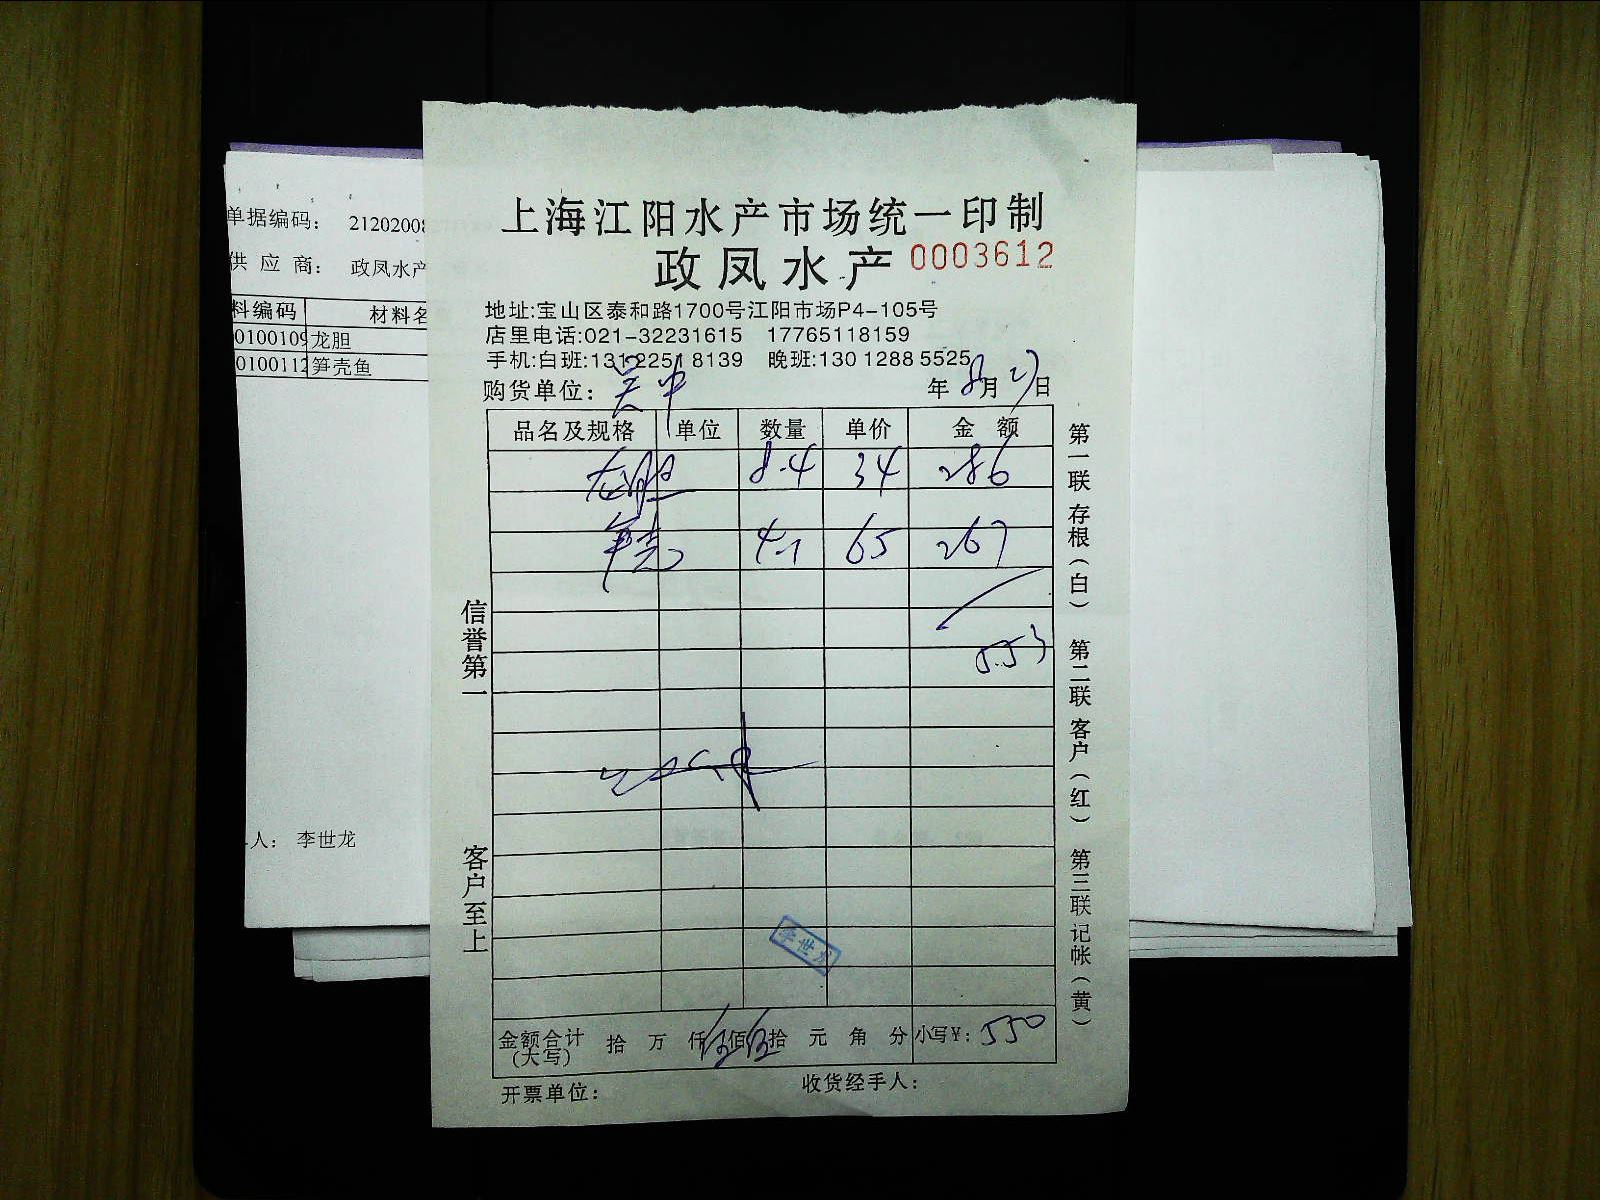 上海江阳水产市场统一印制
政凤水产 0003612
地址:宝山区泰和路1700号江阳市场P4-105号
店里电话:021-32231615 17765118159
手机:白班:131 2251 8139 晚班:130 1288 5525
购货单位: 吴中 年 8月 27日
品名及规格 单位 数量 单价 金额
龙胆 8.4 34 286
笋壳 4.1 65 267
553
李世龙
金额合计(大写) 拾 万 仟 伍佰 伍拾 元 角 分 小写¥: 550
开票单位: 收货经手人:
信誉第一
客户至上
第一联 存根(白) 第二联 客户(红) 第三联 记帐(黄)
单据编码: 2120200
供 应 商: 政凤水产
料编码 材料名
龙胆
笋壳鱼
人: 李世龙